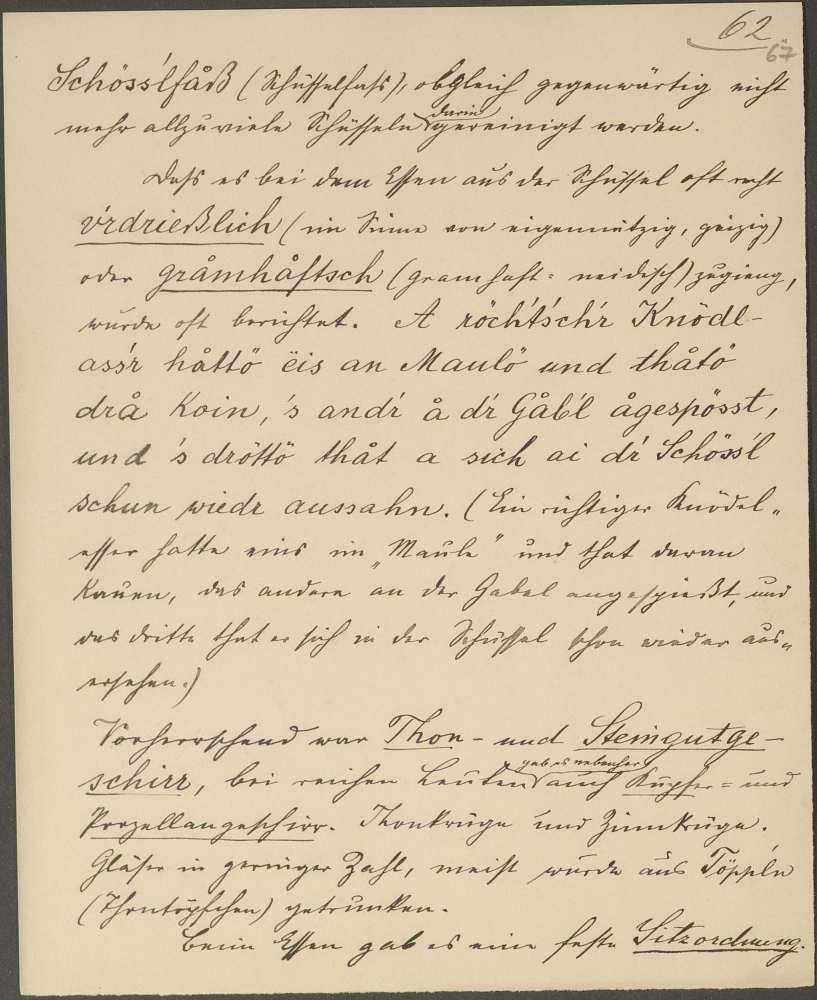 62
67
Schöss'lfåß (Schüsselfass), obgleich gegenwärtig nicht
mehr allzuviele Schüsseln darin gereinigt werden.
Dass es bei dem Essen aus der Schüssel oft recht
v'rdrießlich (im Sinne von eigennützig, geizig)
oder gråmhåftsch (gramhaft = neidisch) zugieng,
wurde oft berichtet. A röcht'sch'r Knödl-
ass'r håttö ëis an Maulö und thåtö
drå Koin, 's andr' å d'r Gåb'l ågespösst,
und 's dröttö thåt a sich ai dr' Schöss'l
schun wiedr aussahn. (Ein richtiger Knödel-
esser hatte eins im „Maule" und that daran
Kauen, das andere an der Gabel angespießt, und
das dritte that er sich in der Schüssel schon wieder aus-
ersehen.)
Vorherrschend war Thon- und Steingutge-
schirr, bei reichen Leuten gab es nebenher auch Kupfer- und
Porzellangeschirr. Thonkrüge und Zinnkrüge.
Gläser in geringer Zahl, meist wurde aus Töpp'ln
(Thontöpfchen) getrunken.
Beim Essen gab es eine feste Sitzordnung.